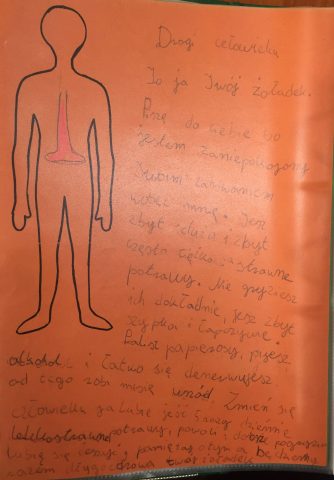 Drogi człowieku
To ja Twój żołądek.
Piszę do ciebie bo
jestem zaniepokojony
Twoim zachowaniem
wobec mnie. Jesz
zbyt dużo i zbyt
często ciężko strawne
potrawy. Nie gryziesz
ich dokładnie, jesz zbyt
szybko i łapczywie.
Palisz papierosy, pijesz
alkohol i łatwo się denerwujesz
od tego robi mi się wrzód. Zmień się
człowieku ja lubię jeść 5 razy dziennie
lekkostrawne potrawy, powoli i dobrze pogryzione
lubię się i pamiętaj o tym a będziemy
razem długo zdrowa twój żołądek